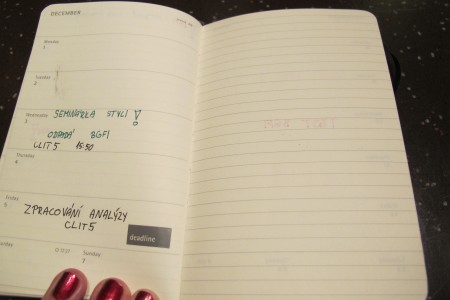 DECEMBER
Monday
1
Tuesday
2
Wednesday
3
SEMINÁRKA STYLI!
ODPADÁ BGFI
CLIT5 15:50
Thursday
4
Friday
5
ZPRACOVÁNÍ ANALÝZY
CLIT5
deadline
Sunday
7